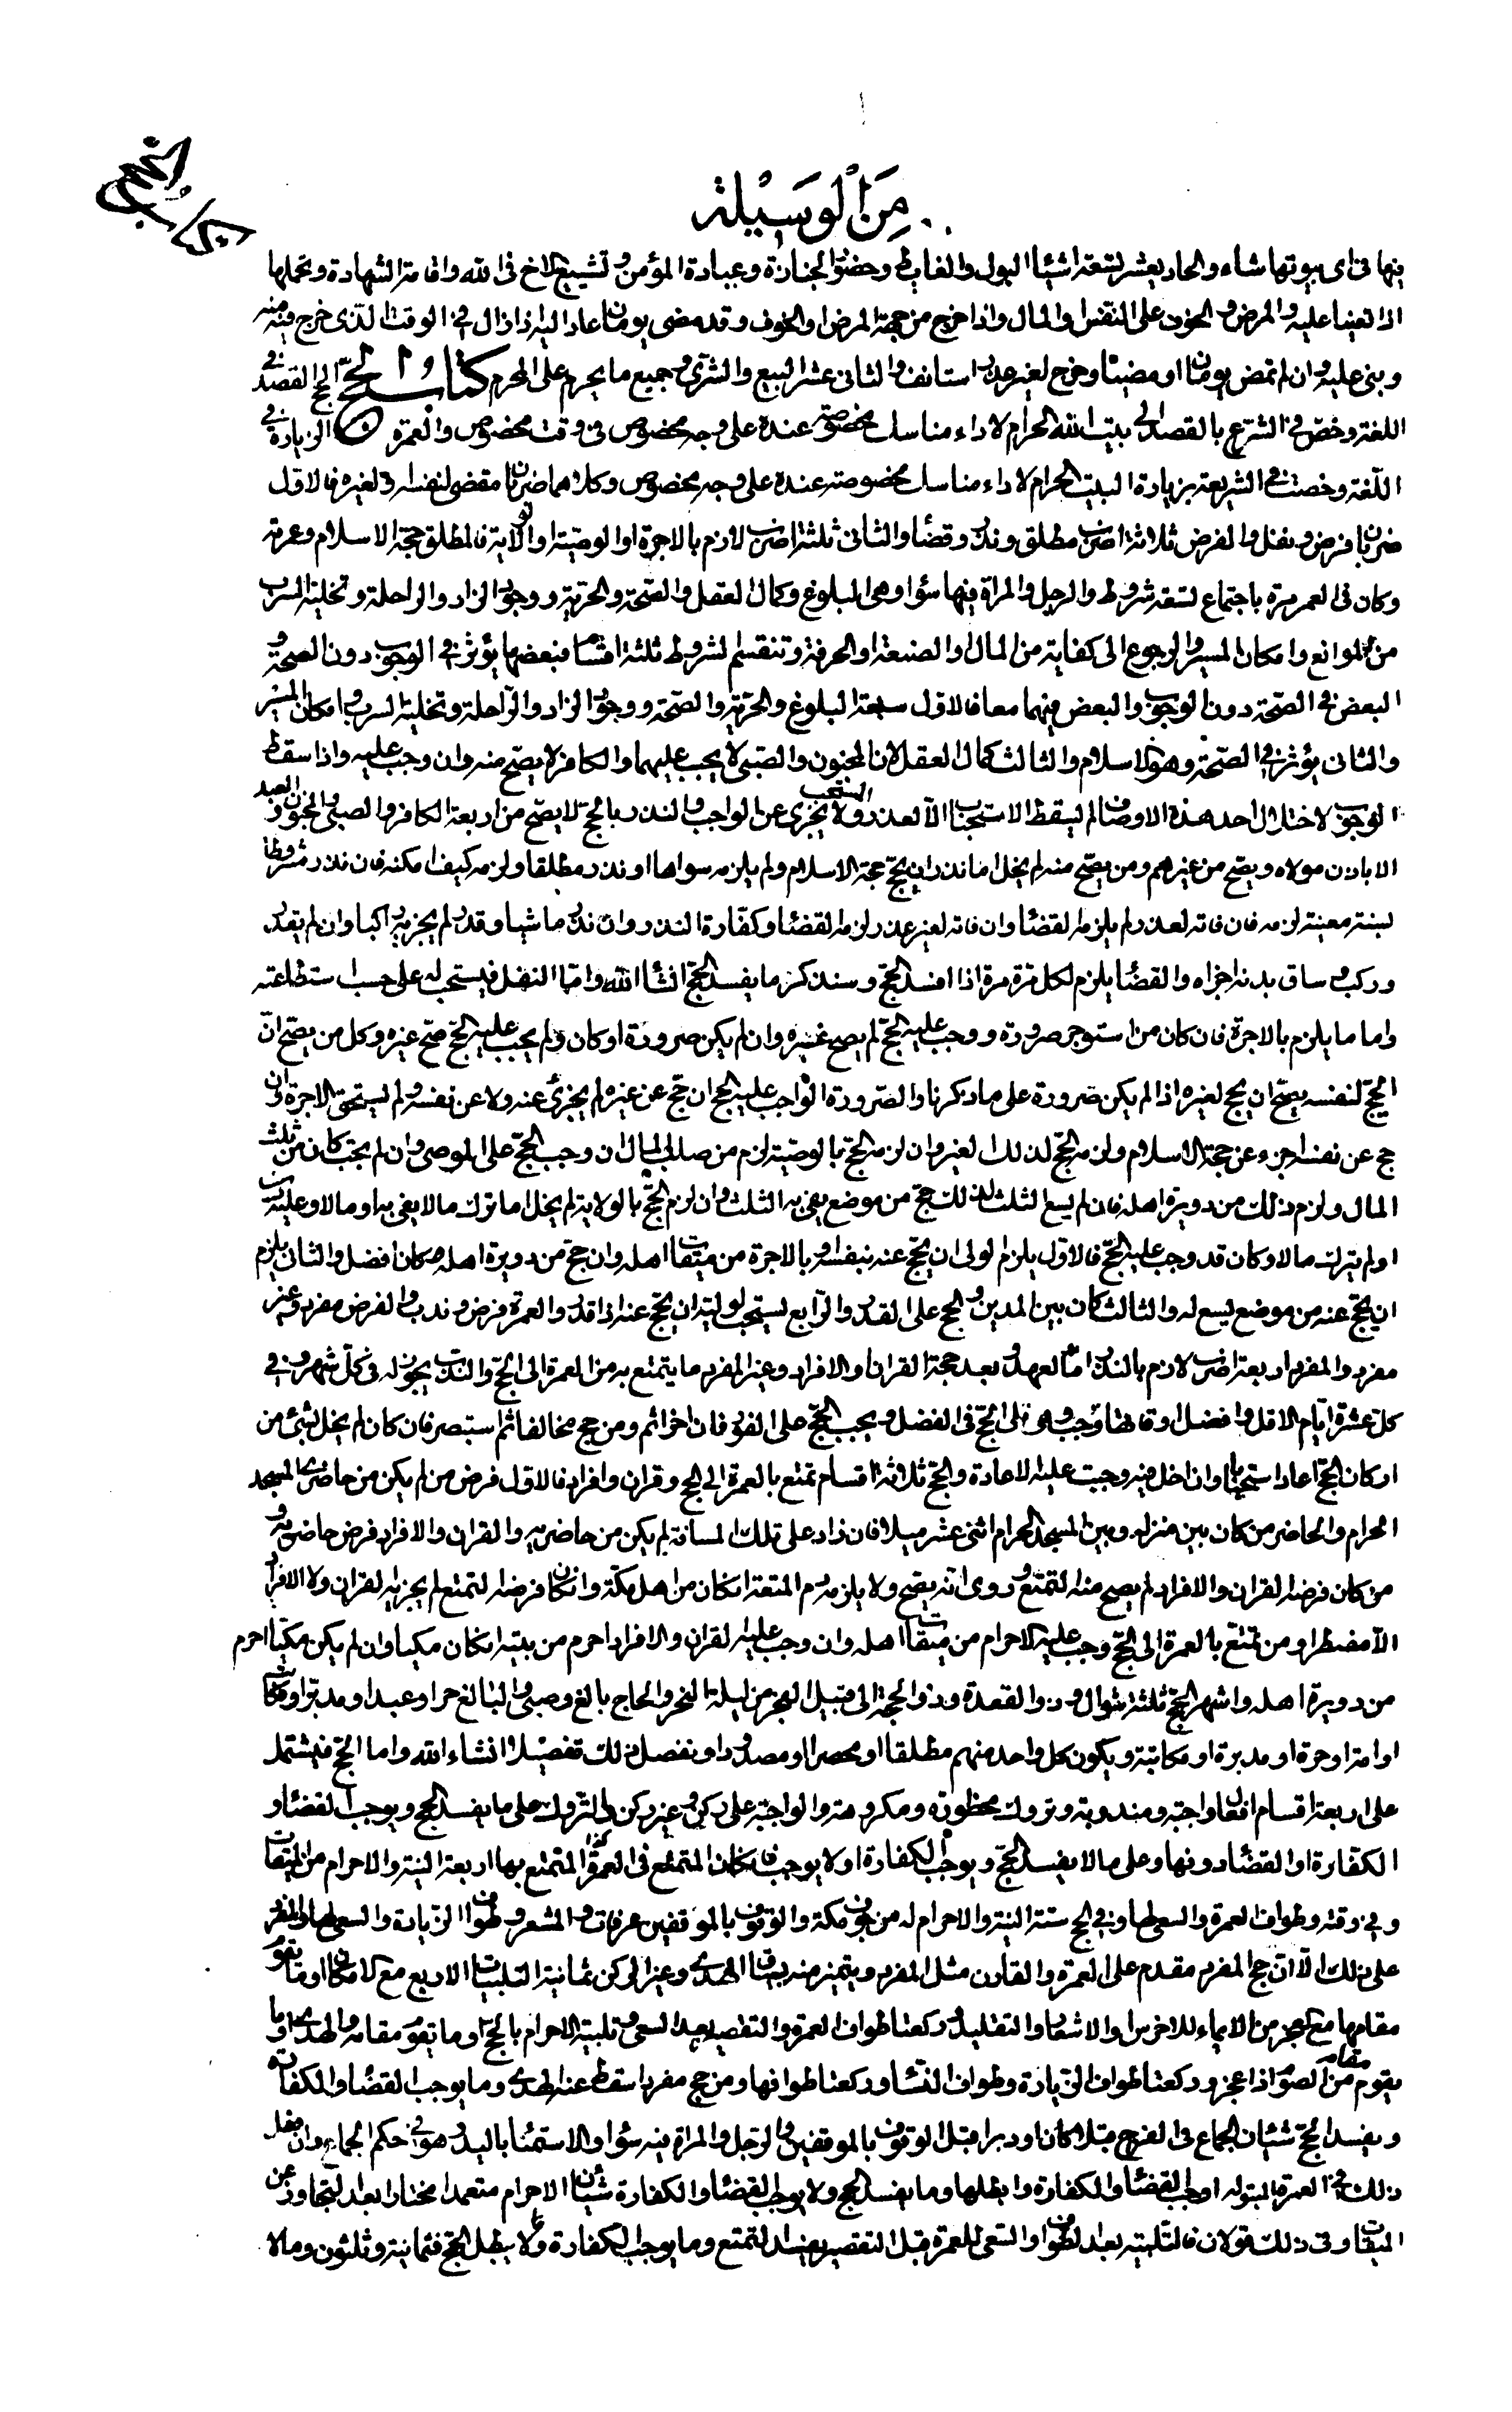 كتاب الحج
من الوسيلة
فيها في اى بيوتها شاء والحاد يعشر لتسعة اشياء البول والغايط وحضور الجنازة وعيادة المؤمن وتشييع الاخ في الله واقامة الشهادة وتحملها
اذا تعينا عليه والمرض والخوف على النفس والمال واذا خرج من جهة المرض او الخوف وقد مضى يومان عاد اليه اذا زال في الوقت الذى خرج فيه منه
وبنى عليه وان لم تمض يومان او مضيتا وخرج لغير عذر استانف والثانى عشر البيع والشرى وجميع ما يحرم على المحرم كتاب الحج الحج القصد في
اللغة وخص في الشرع بالقصد الى بيت الله الحرام لاداء مناسك مخصوصة عنده على وجه مخصوص في وقت مخصوص والعمرة الزيارة في
اللغة وخصت في الشريعة بزيارة البيت الحرام لاداء مناسك مخصوصة عنده على وجه مخصوص وكلاهما ضربان مقضى لنفسه ولغيره فالاول
ضربان فرض ونفل والفرض ثلاثة اضرب مطلق ونذر وقضاء والثانى ثلثة اضرب لازم بالاجرة او الوصية او الولاية فالمطلق حجة الاسلام وعمرته
وكان في العمر مرة باجتماع تسعة شروط والرجل والمراة فيها سواء وهى البلوغ وكمال العقل والصحة والحرية ووجود الزاد والراحلة وتخلية السرب
من الموانع وامكان المسير والرجوع الى كفاية من المال او الصنعة او الحرفة وتنقسم الشروط ثلثة اقسام فبعضها يؤثر في الوجوب دون الصحة و
البعض في الصحة دون الوجوب والبعض فيهما معا فالاول سبعة البلوغ والحرية والصحة ووجود الزاد والراحلة وتخلية السرب وامكان المسير
والثانى يؤثر في الصحة وهو الاسلام والثالث كمال العقل لان المجنون والصبى لا يجب عليهما والكافر لا يصح منه وان وجب عليه واذا سقط
الوجوب لاختلال احد هذه الاوصاف لم يسقط الاستحباب الا لعذر ولا يجزى المستحب عن الواجب والنذر بالحج لا يصح من اربعة الكافر والصبى والمجنون والعبد
الا باذن مولاه ويصح من غيرهم ومن يصح منه لم يخل اما نذر ان يحج حجة الاسلام ولم يلزمه سواها او نذر مطلقا ولزمه كيف امكنه فان نذر مشروطا
لسنة معينة لزمه فان فاته لعذر لم يلزمه القضاء وان فاته لغير عذر لزمه القضاء وكفارة النذر وان نذر ماشيا وقدر لم يجزيه راكبا وان لم يقدر
وركب وساق بدنه اجزاه والقضاء يلزم لكل مرة مرة اذا افسد الحج وسنذكر ما يفسد الحج انشا الله واما النفل فيستحب له على حسب استطاعته
واما ما يلزم بالاجرة فان كان من استوجر صرورة ووجب عليه الحج لم يصح غيره وان لم يكن صرورة او كان ولم يجب عليه الحج صح عنه وكل من يصح ان
الحج لنفسه يصح ان يحج لغيره اذا لم يكن ضرورة على ما ذكرنا والصرورة الواجب عليه الحج ان حج عن غيره لم يجزئ عنه ولا عن نفسه ولم يستحق الاجرة وان
حج عن نفسه اجزء عن حجة الاسلام ولزمه الحج لذلك الغير وان لزمه الحج بالوصية لزم من صلب المال ان وجب الحج على الموصى وان لم يجب كان من ثلث
المال ولزم ذلك من دويرة اهله فان لم يسع الثلث لذلك حج من موضع يفى به الثلث وان لزم الحج بالولاية لم يخل اما ترك مالا يفى به او مالا وعليه دين
او لم يترك مالا وكان قد وجب عليه الحج فالاول يلزم الولى ان يحج عنه بنفسه او بالاجرة من ميقات اهله وان حج من دويرة اهله كان افضل والثانى يلزم
ان يحج عنه من موضع يسع له والثالث كان بين الدين والحج على القدر والرابع يستحب لوليه ان يحج عنه اذا قدر والعمرة فرض وندب والفرض مفرد وغير
مفرد والمفرد اربعة اضرب لازم بالنذر او العهد وبعد حجة القران والافراد وغير المفرد ما يتمتع به من العمرة الى الحج والندب يجوز له في كل شهر وفي
كل عشرة ايام الاقل وافضل اوقاتها رجب وهو تلى الحج في الفضل ويجب الحج على الفور فان اخر اثم ومن حج مخالفا ثم استبصر فان كان لم يخل بشئ من
اركان الحج اعاد استحبابا وان اخل فيه وجبت عليه الاعادة والحج ثلاثة اقسام تمتع بالعمرة الى الحج وقران وافراد فالاول فرض من لم يكن من حاضرى المسجد
الحرام والحاضر من كان بين منزله وبين المسجد الحرام اثنى عشر ميلا فان زاد على تلك المسافة لم يكن من حاضريه والقران والافراد فرض حاضريه و
من كان فرضه القران والافراد لم يصح منه التمتع وروى انه يصح ولا يلزمه دم المتعة ان كان من اهل مكة وان كان فرضه التمتع لم يجزيه القران ولا الافراد
الا مضطرا ومن تمتع بالعمرة الى الحج وجب عليه الاحرام من ميقات اهله وان وجب عليه القران والافراد احرم من بيته ان كان مكيا وان لم يكن مكيا احرم
من دويرة اهله واشهر الحج ثلثة شوال وذو القعدة وذو الحجة الى قبيل الفجر من ليلة النحر والحاج بالغ وصبى والبالغ حر او عبد او مدبر او مكاتب
او امة او حرة او مدبرة او مكاتبة ويكون كل واحد منهم مطلقا او محصرا او مصدودا ونفصل ذلك تفصيلا انشاء الله واما الحج فيشتمل
على اربعة اقسام افعال واجبة ومندوبة وتروك محظورة ومكروهة والواجبة على ركن وغير ركن والتروك على ما يفسد الحج ويوجب القضاء و
الكفارة او القضاء دونها وعلى ما لا يفسد الحج ويوجب الكفارة او لا يوجب فاركان المتمتع في العمرة المتمتع بها اربعة النية والاحرام من الميقات
وفي وقته وطواف العمرة والسعى لها وفي الحج ستة النية والاحرام له من جوف مكة والوقوف بالموقفين عرفات والمشعر وطواف الزيادة والسعى لها والمفرد
على ذلك الا ان حج المفرد مقدم على العمرة والقارن مثل المفرد ويتميز منه بسياق الهدى وغير الركن ثمانية التلبيات الاربع مع الامكان او ما يقوم
مقامها مع العجز من الايماء للاخرس والاشعار والتقليد وركعتا طواف العمرة والتقصير بعد السعى وتلبية الاحرام بالحج او ما يقوم مقامه والهدى او ما
يقوم مقامه من الصوم اذا عجز وركعتا طواف الزيادة وطواف النساء وركعتا طوافها ومن حج مفردا سقط عنه الهدى وما يوجب القضاء والكفارة
ويفسد الحج شيئان الجماع في الفرج قبلا كان او دبرا قبل الوقوف بالموقفين والرجل والمراة فيه سواء والاستمناء باليد وهو في حكم الجماع وان فعل
ذلك في العمرة المبتولة اوجب القضاء والكفارة وابطلها وما يفسد الحج ولا يوجب القضاء والكفارة شيئان الاحرام متعمدا مختارا بعد التجاوز عن
الميقات وفي ذلك قولان فالتلبية بعد الطواف والسعى للعمرة قبل التقصير يفسد التمتع وما يوجب الكفارة ولا يبطل الحج فثمانية وثلثون وما لا